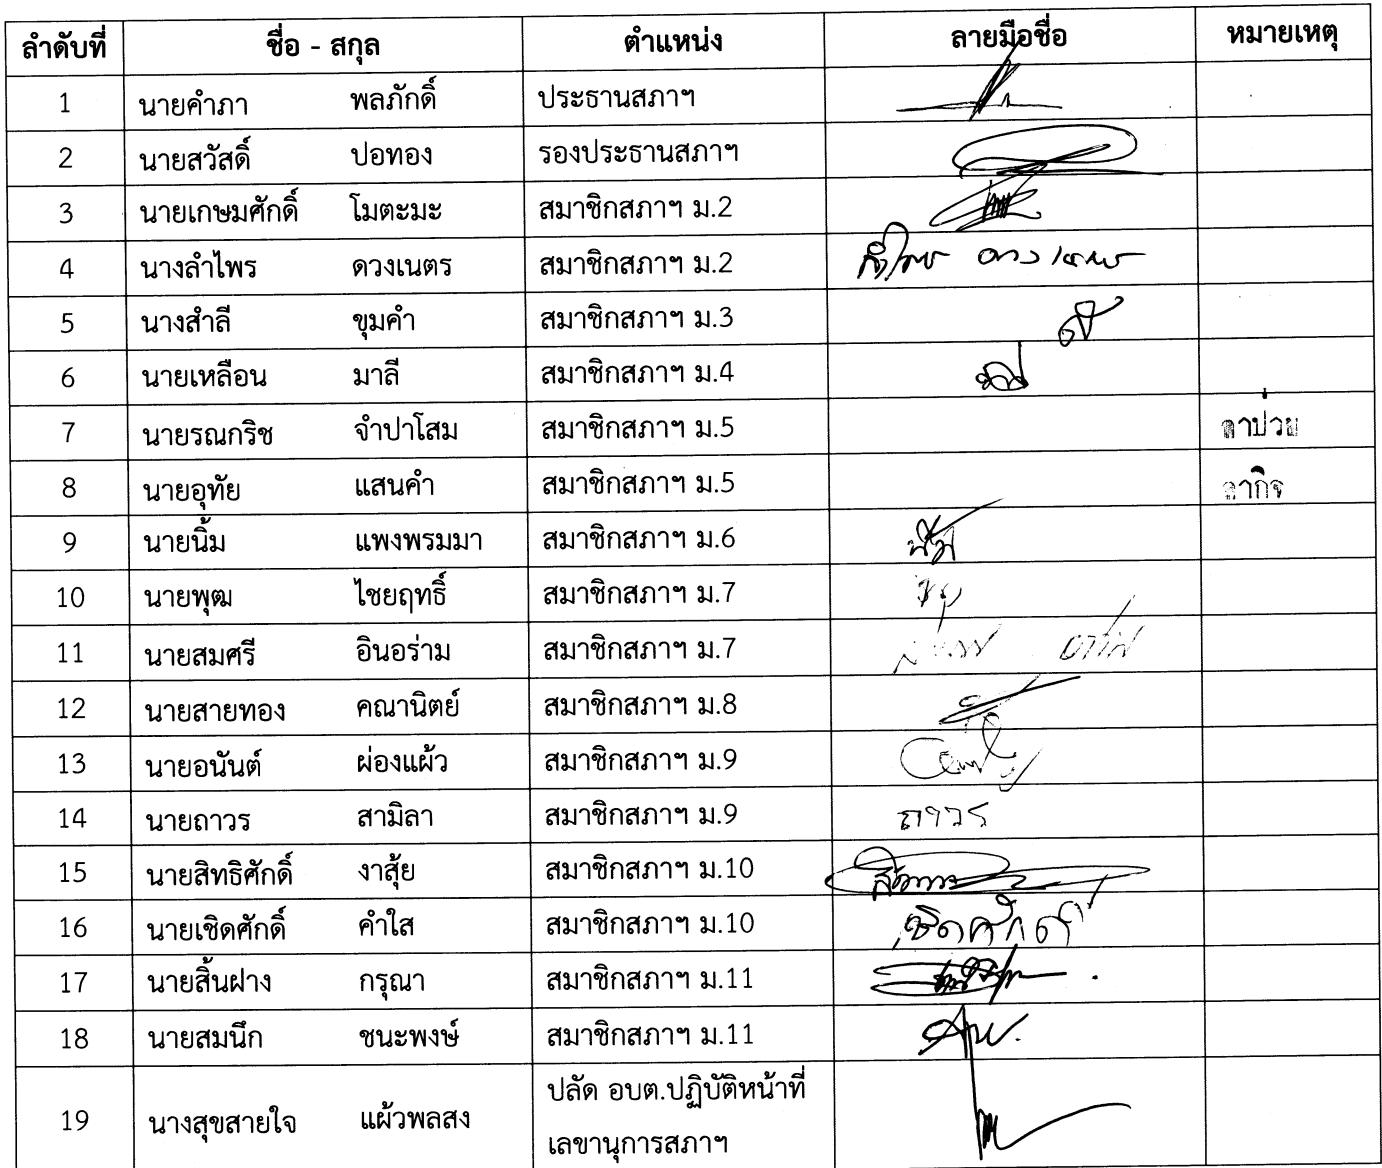 ลำดับที่ ชื่อ - สกุล ตำแหน่ง ลายมือชื่อ หมายเหตุ
1 นายคำภา พลภักดิ์ ประธานสภาฯ
2 นายสวัสดิ์ ปอทอง รองประธานสภาฯ
3 นายเกษมศักดิ์ โมตะมะ สมาชิกสภาฯ ม.2
4 นางลำไพร ดวงเนตร สมาชิกสภาฯ ม.2 ลำไพร ดวงเนตร
5 นางสำลี ขุมคำ สมาชิกสภาฯ ม.3
6 นายเหลือน มาลี สมาชิกสภาฯ ม.4
7 นายรณกริช จำปาโสม สมาชิกสภาฯ ม.5 ลาป่วย
8 นายอุทัย แสนคำ สมาชิกสภาฯ ม.5 ลากิจ
9 นายนิ้ม แพงพรมมา สมาชิกสภาฯ ม.6
10 นายพุฒ ไชยฤทธิ์ สมาชิกสภาฯ ม.7
11 นายสมศรี อินอร่าม สมาชิกสภาฯ ม.7
12 นายสายทอง คณานิตย์ สมาชิกสภาฯ ม.8
13 นายอนันต์ ผ่องแผ้ว สมาชิกสภาฯ ม.9
14 นายถาวร สามิลา สมาชิกสภาฯ ม.9 ถาวร
15 นายสิทธิศักดิ์ งาสุ้ย สมาชิกสภาฯ ม.10
16 นายเชิดศักดิ์ คำใส สมาชิกสภาฯ ม.10 เชิดศักดิ์
17 นายสิ้นฝาง กรุณา สมาชิกสภาฯ ม.11
18 นายสมนึก ชนะพงษ์ สมาชิกสภาฯ ม.11
19 นางสุขสายใจ แผ้วพลสง ปลัด อบต.ปฏิบัติหน้าที่
เลขานุการสภาฯ